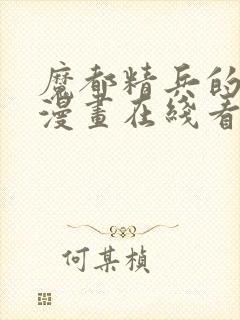 魔都精兵的
漫畫在綫看
何某楨